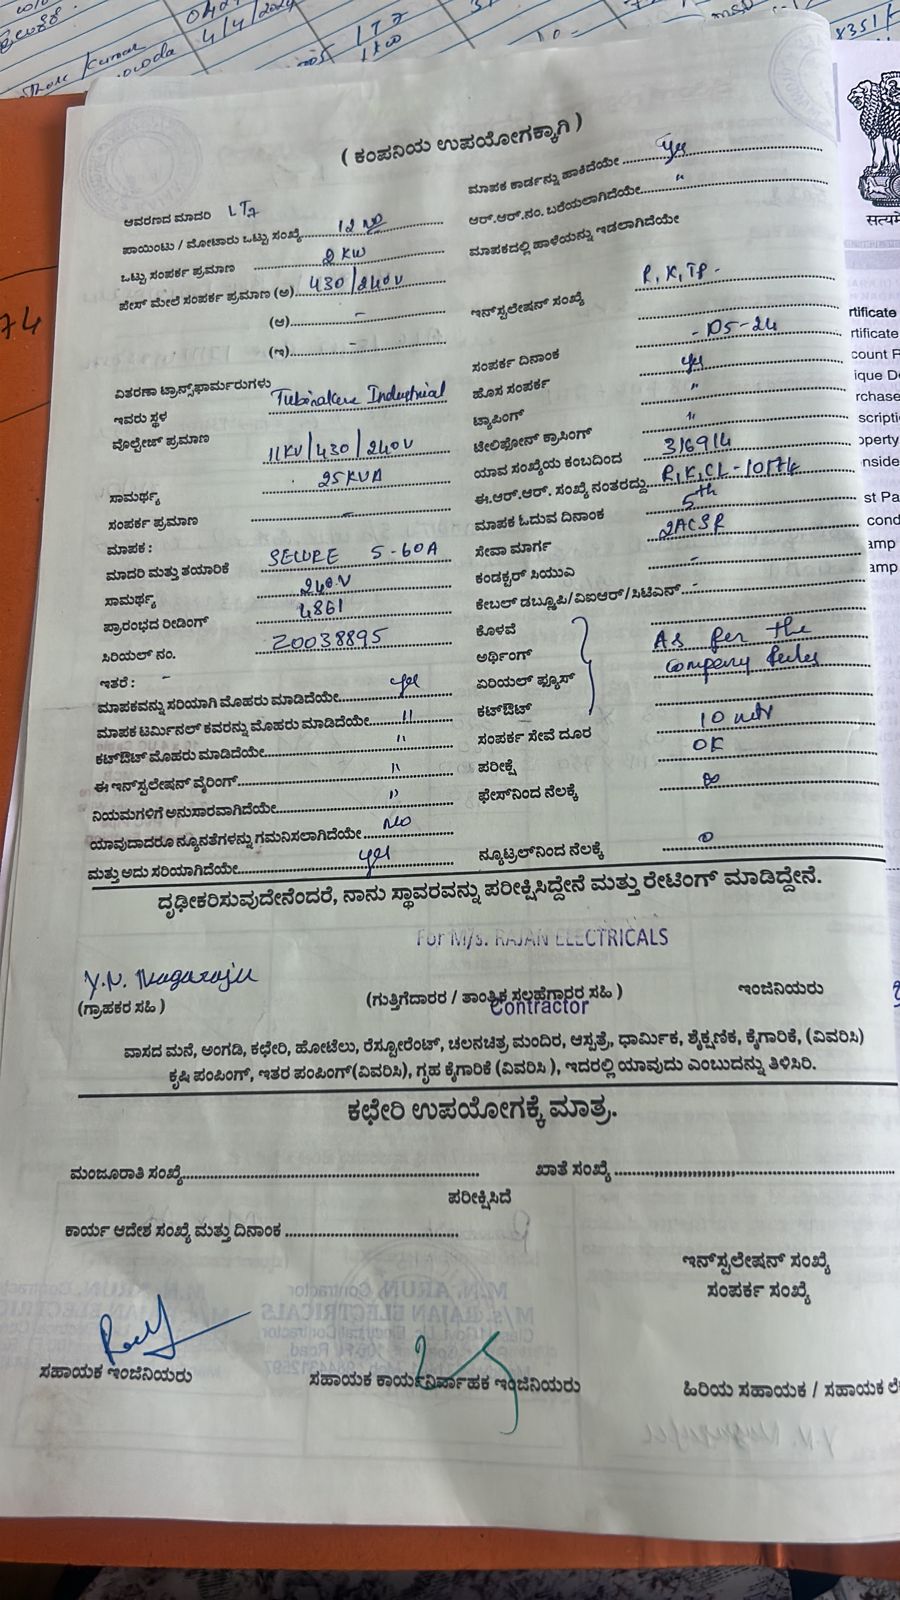 ( ಕಂಪನಿಯ ಉಪಯೋಗಕ್ಕಾಗಿ )
ಆವರಣದ ಮಾದರಿ LT7
ಪಾಯಿಂಟು / ಮೋಟಾರು ಒಟ್ಟು ಸಂಖ್ಯೆ 12 No
ಒಟ್ಟು ಸಂಪರ್ಕ ಪ್ರಮಾಣ 2 KW
ಪೇಸ್ ಮೇಲೆ ಸಂಪರ್ಕ ಪ್ರಮಾಣ (ಅ) 430/240V
(ಆ) -
(ಇ) -
ವಿತರಣಾ ಟ್ರಾನ್ಸ್‌ಫಾರ್ಮರುಗಳು
ಇವರು ಸ್ಥಳ Tubinakere Industrial
ವೊಲ್ಟೇಜ್ ಪ್ರಮಾಣ 11KV/430/240V
ಸಾಮರ್ಥ್ಯ 25KVA
ಸಂಪರ್ಕ ಪ್ರಮಾಣ -
ಮಾಪಕ :
ಮಾದರಿ ಮತ್ತು ತಯಾರಿಕೆ SECURE 5-60A
ಸಾಮರ್ಥ್ಯ 240V
ಪ್ರಾರಂಭದ ರೀಡಿಂಗ್ 4861
ಸಿರಿಯಲ್ ನಂ. 20038895
ಇತರೆ : -
ಮಾಪಕವನ್ನು ಸರಿಯಾಗಿ ಮೊಹರು ಮಾಡಿದೆಯೇ yes
ಮಾಪಕ ಟರ್ಮಿನಲ್ ಕವರನ್ನು ಮೊಹರು ಮಾಡಿದೆಯೇ "
ಕಟ್‌ಔಟ್ ಮೊಹರು ಮಾಡಿದೆಯೇ "
ಈ ಇನ್‌ಸ್ಟಲೇಷನ್ ವೈರಿಂಗ್ "
ನಿಯಮಗಳಿಗೆ ಅನುಸಾರವಾಗಿದೆಯೇ "
ಯಾವುದಾದರೂ ನ್ಯೂನತೆಗಳನ್ನು ಗಮನಿಸಲಾಗಿದೆಯೇ No
ಮತ್ತು ಅದು ಸರಿಯಾಗಿದೆಯೇ yes
ಮಾಪಕ ಕಾರ್ಡನ್ನು ಹಾಕಿದೆಯೇ Yes
ಆರ್.ಆರ್.ನಂ. ಬರೆಯಲಾಗಿದೆಯೇ "
ಮಾಪಕದಲ್ಲಿ ಹಾಳೆಯನ್ನು ಇಡಲಾಗಿದೆಯೇ
ಇನ್‌ಸ್ಟಲೇಷನ್ ಸಂಖ್ಯೆ R,K,TP-
ಸಂಪರ್ಕ ದಿನಾಂಕ -05-24
ಹೊಸ ಸಂಪರ್ಕ yes
ಟ್ಯಾಪಿಂಗ್ "
ಟೆಲಿಫೋನ್ ಕ್ರಾಸಿಂಗ್ "
ಯಾವ ಸಂಖ್ಯೆಯ ಕಂಬದಿಂದ 3/69/4
ಈ.ಆರ್.ಆರ್. ಸಂಖ್ಯೆ ನಂತರದ್ದು R,K,CL-10174
ಮಾಪಕ ಓದುವ ದಿನಾಂಕ 5th
ಸೇವಾ ಮಾರ್ಗ 2ACSR
ಕಂಡಕ್ಟರ್ ಸಿಯುಎ -
ಕೇಬಲ್ ಡಬ್ಲೂಪಿ/ವಿಐಆರ್/ಸಿಟಿಎನ್ -
ಕೊಳವೆ
ಅರ್ಥಿಂಗ್ As per the
ಏರಿಯಲ್ ಫ್ಯೂಸ್ Company Rules
ಕಟ್‌ಔಟ್
ಸಂಪರ್ಕ ಸೇವೆ ದೂರ 10 mtr
ಪರೀಕ್ಷೆ OK
ಫೇಸ್‌ನಿಂದ ನೆಲಕ್ಕೆ ∞
ನ್ಯೂಟ್ರಲ್‌ನಿಂದ ನೆಲಕ್ಕೆ 0
ದೃಢೀಕರಿಸುವುದೇನೆಂದರೆ, ನಾನು ಸ್ಥಾವರವನ್ನು ಪರೀಕ್ಷಿಸಿದ್ದೇನೆ ಮತ್ತು ರೇಟಿಂಗ್ ಮಾಡಿದ್ದೇನೆ.
For M/s. RAJAN ELECTRICALS
Y.N. Nagaraju
(ಗ್ರಾಹಕರ ಸಹಿ ) (ಗುತ್ತಿಗೆದಾರರ / ತಾಂತ್ರಿಕ ಸಲಹೆಗಾರರ ಸಹಿ ) ಇಂಜಿನಿಯರು
Contractor
ವಾಸದ ಮನೆ, ಅಂಗಡಿ, ಕಛೇರಿ, ಹೋಟೆಲು, ರೆಸ್ಟೋರೆಂಟ್, ಚಲನಚಿತ್ರ ಮಂದಿರ, ಆಸ್ಪತ್ರೆ, ಧಾರ್ಮಿಕ, ಶೈಕ್ಷಣಿಕ, ಕೈಗಾರಿಕೆ, (ವಿವರಿಸಿ)
ಕೃಷಿ ಪಂಪಿಂಗ್, ಇತರ ಪಂಪಿಂಗ್(ವಿವರಿಸಿ), ಗೃಹ ಕೈಗಾರಿಕೆ (ವಿವರಿಸಿ ), ಇದರಲ್ಲಿ ಯಾವುದು ಎಂಬುದನ್ನು ತಿಳಿಸಿರಿ.
ಕಛೇರಿ ಉಪಯೋಗಕ್ಕೆ ಮಾತ್ರ.
ಮಂಜೂರಾತಿ ಸಂಖ್ಯೆ ಖಾತೆ ಸಂಖ್ಯೆ
ಪರೀಕ್ಷಿಸಿದೆ
ಕಾರ್ಯ ಆದೇಶ ಸಂಖ್ಯೆ ಮತ್ತು ದಿನಾಂಕ
ಇನ್‌ಸ್ಟಲೇಷನ್ ಸಂಖ್ಯೆ
ಸಂಪರ್ಕ ಸಂಖ್ಯೆ
ಸಹಾಯಕ ಇಂಜಿನಿಯರು ಸಹಾಯಕ ಕಾರ್ಯನಿರ್ವಾಹಕ ಇಂಜಿನಿಯರು ಹಿರಿಯ ಸಹಾಯಕ / ಸಹಾಯಕ